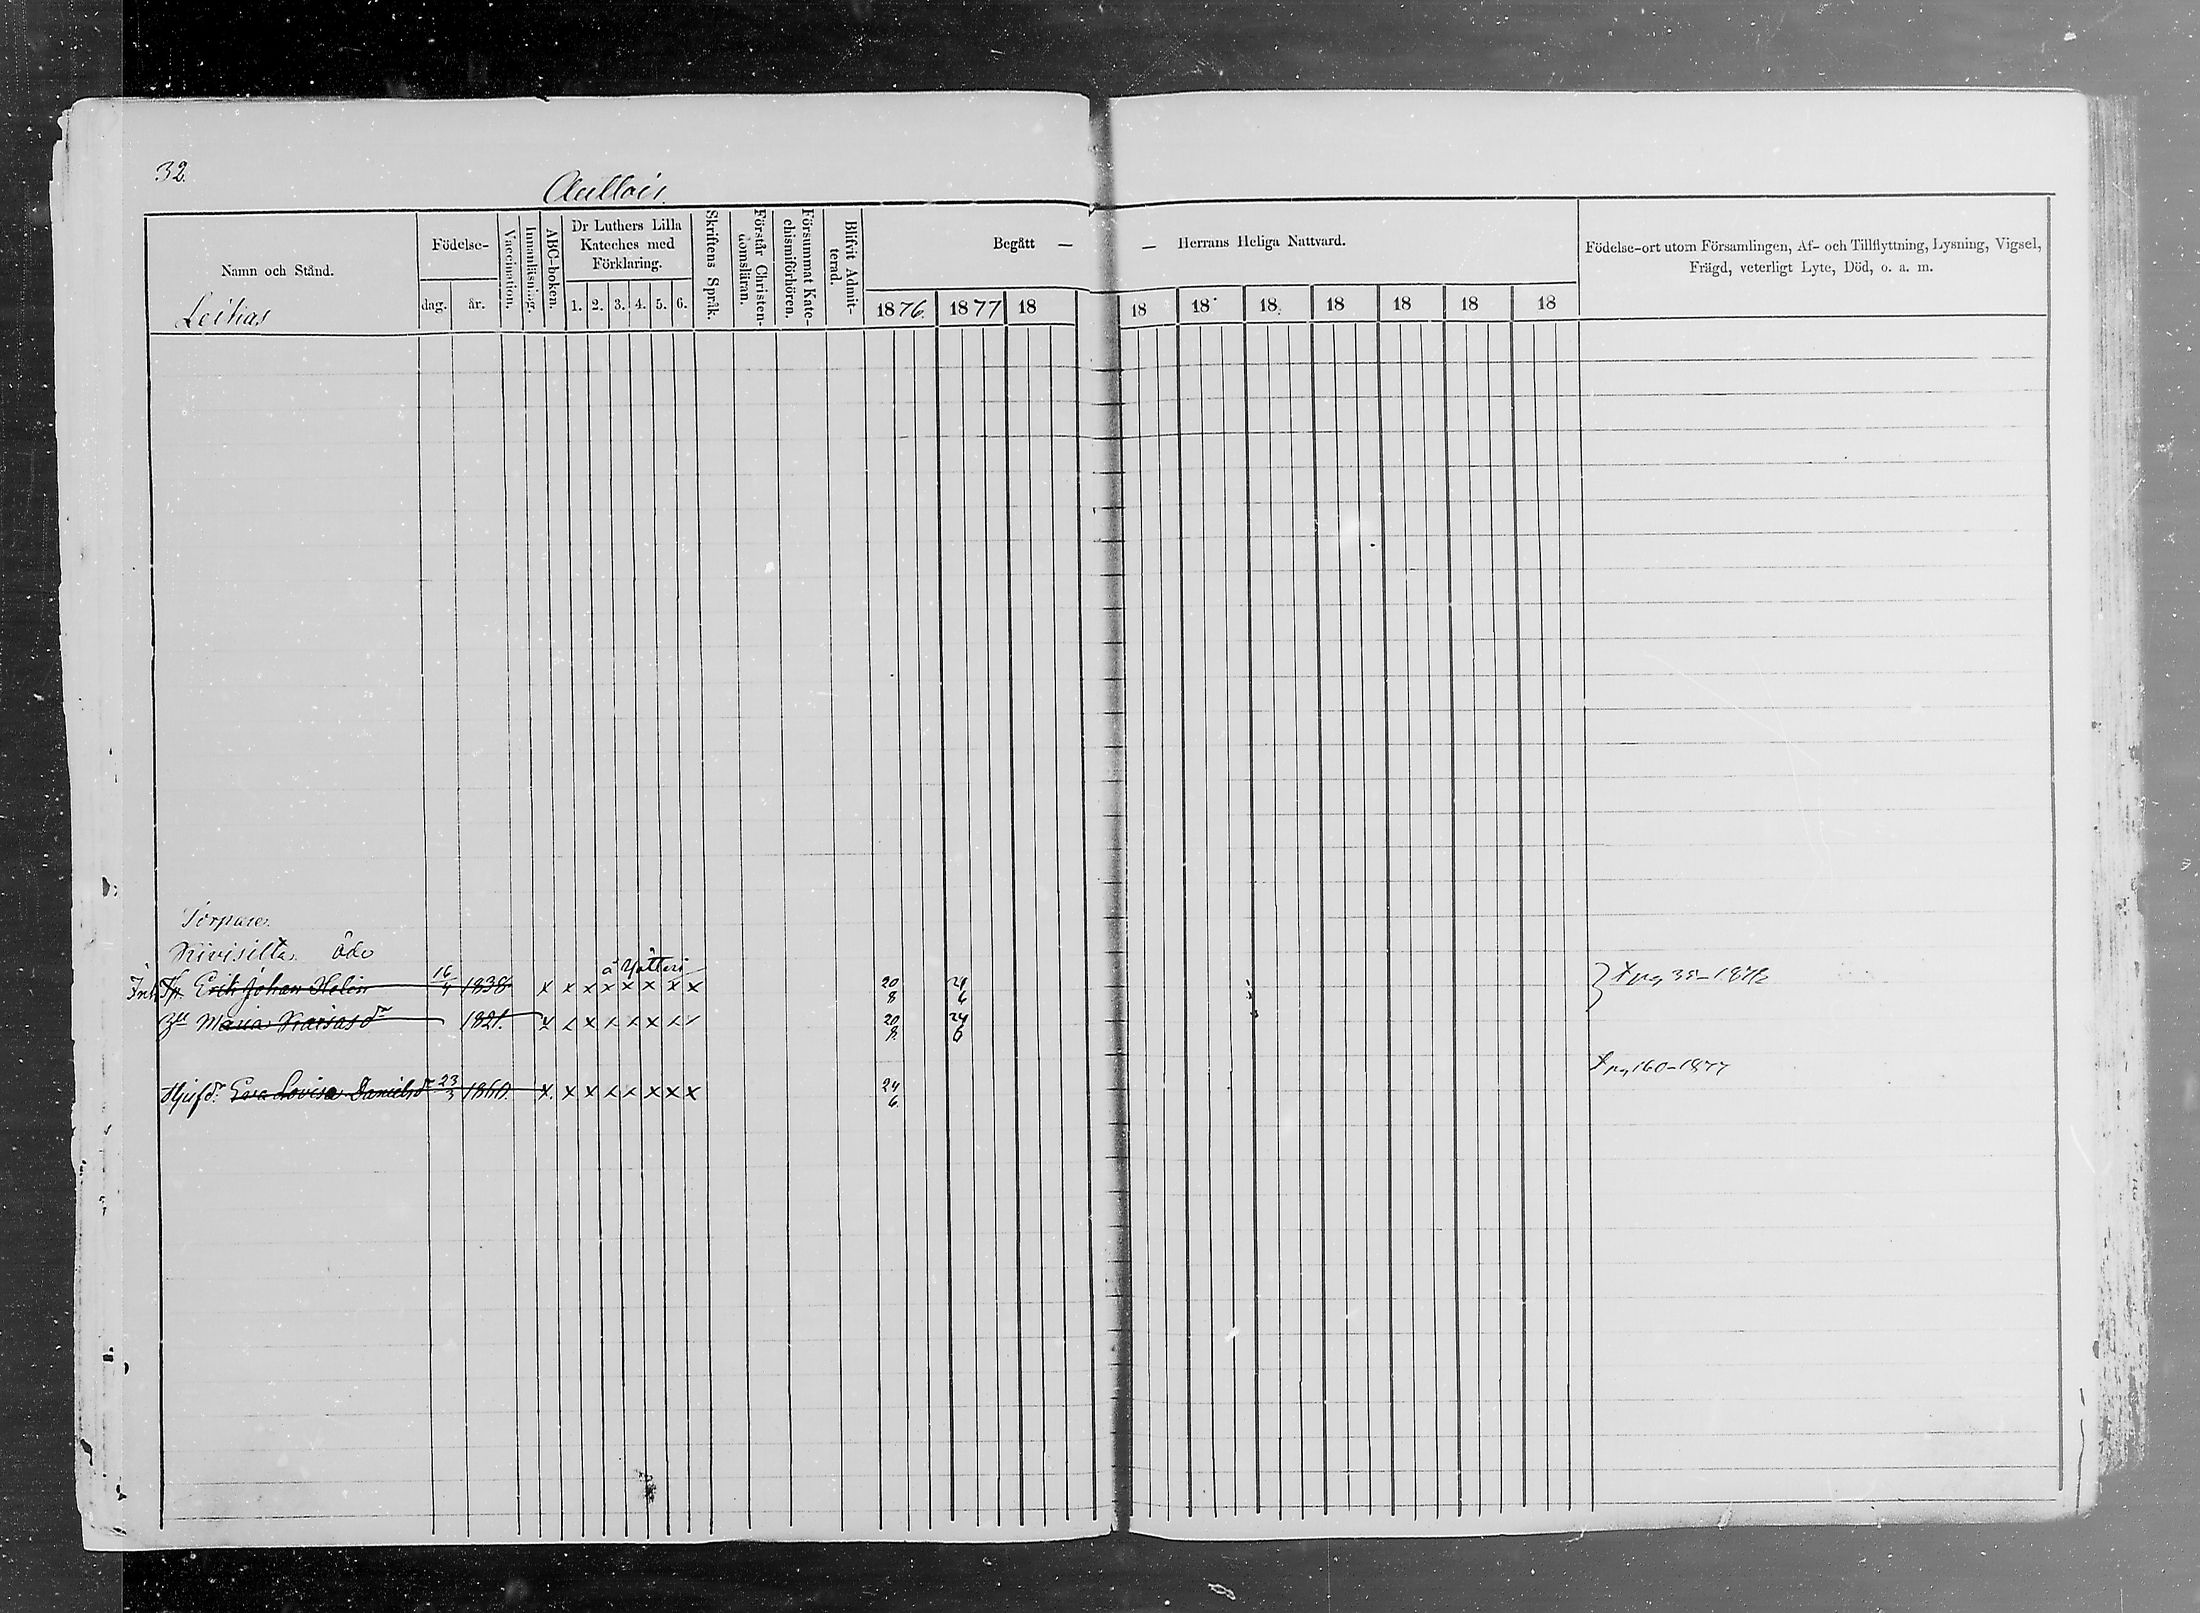 32.
Namn och Stånd.
Födelse-
dag. år.
Vaccination.
Innanläsning.
ABC-boken.
Dr Luthers Lilla
Kateches med
Förklaring.
1. 2. 3. 4. 5. 6.
Skriftens Språk.
Förstår Christen-
domsläran.
Försummat Kate-
chismiförhören.
Blifvit Admit-
terad.
Begått — — Herrans Heliga Nattvard.
1876. 1877 18 18 18 18. 18 18 18 18
Födelse-ort utom Församlingen, Af- och Tillflyttning, Lysning, Vigsel,
Frägd, veterligt Lyte, Död, o. a. m.
Torpare.
Kivisilta öde
Erik Johan Helin 16/4 1838 x x x x x x x x 20/8 24/6
Maria 1821. x x x x x x x x 20/8 24/6
pg 160-1877
Eva Lovisa Danielsdr 23/3 1860. x x x x x x x x 24/6